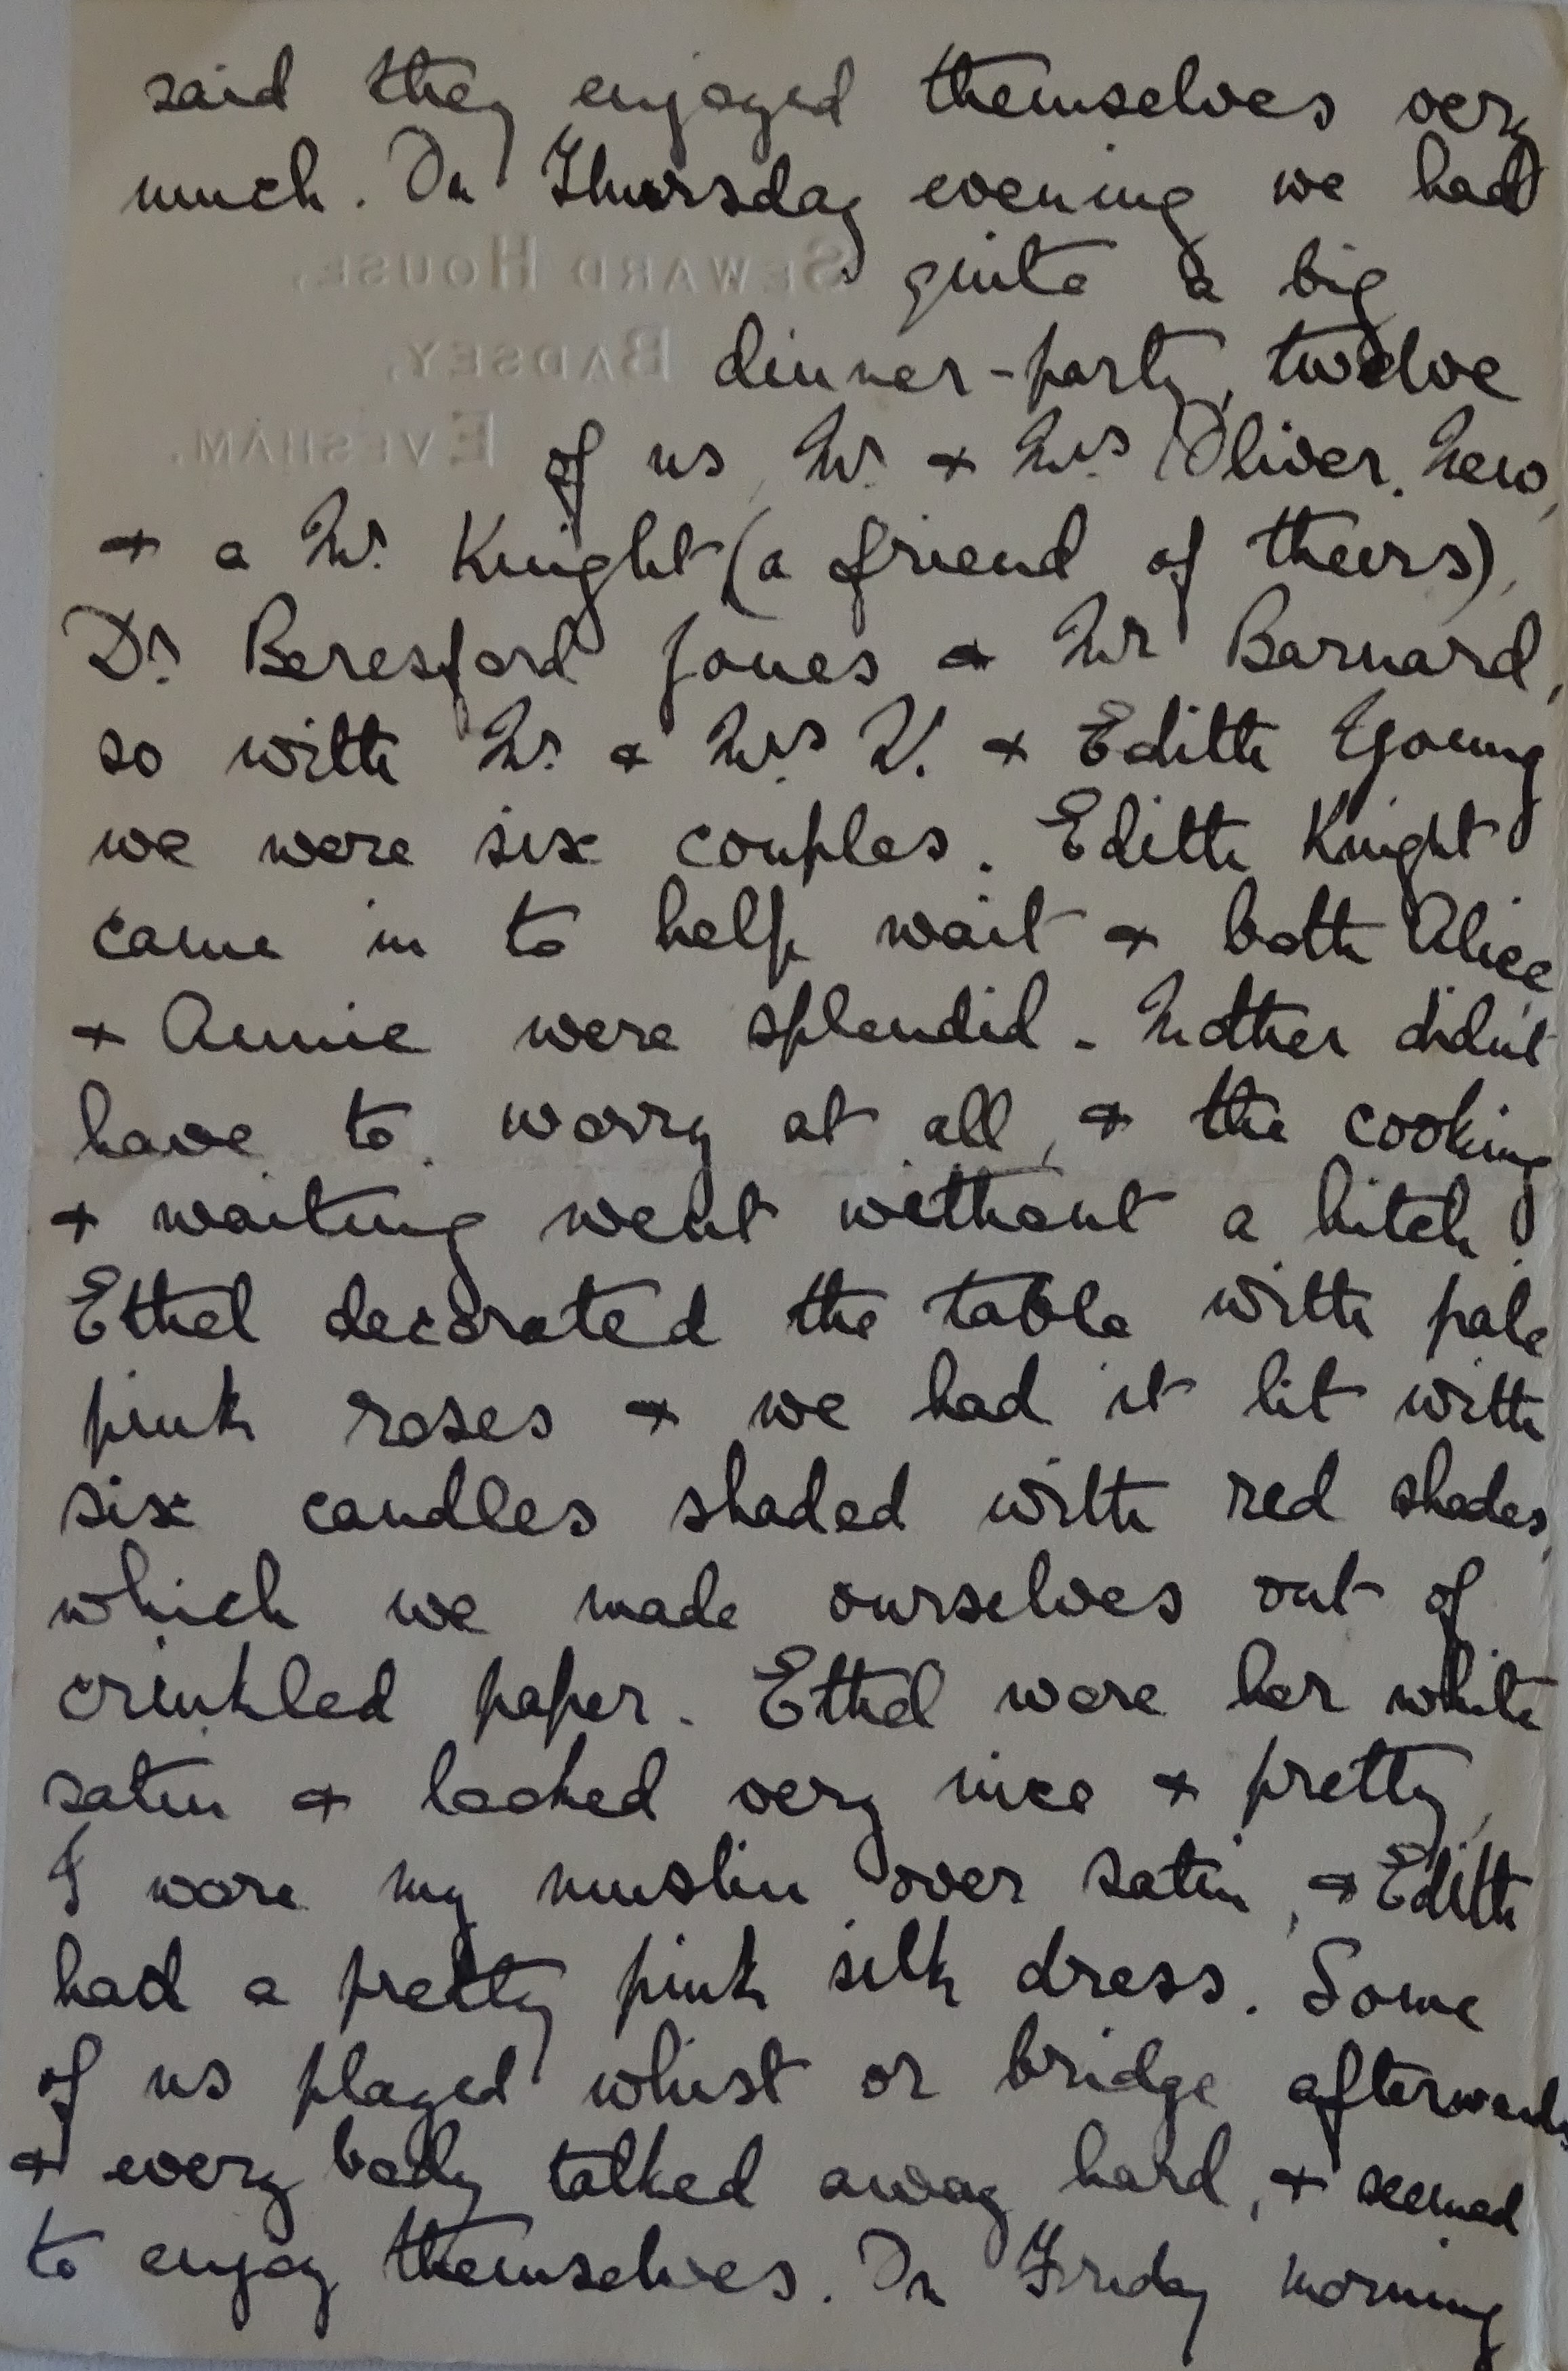 said they enjoyed themselves very
much. On Thursday evening we had
SEWARD HOUSE,
quite a big
BADSEY,
dinner-party, twelve
EVESHAM.
of us, Mr. & Mrs Oliver. New,
& a Mr. Knight (a friend of theirs),
Dr. Beresford Jones & Mr Barnard,
so with Mr. & Mrs. V. & Edith Young
we were six couples. Edith Knight
came in to help wait & both Alice
& Annie were splendid. Mother didn't
have to worry at all, & the cooking
& waiting went without a hitch.
Ethel decorated the table with pale
pink roses & we had it lit with
six candles shaded with red shades,
which we made ourselves out of
crinkled paper. Ethel wore her white
satin & looked very nice & pretty,
I wore my muslin over satin, & Edith
had a pretty pink silk dress. Some
of us played whist or bridge afterwards
& every body talked away hard, & seemed
to enjoy themselves. On Friday morning